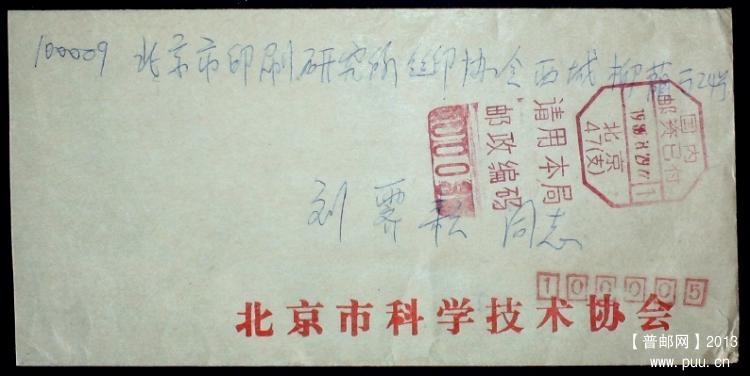 100009 北京市印刷研究所丝印协会西城柳荫街24号
国内
邮资已付
北京
47(支)
请用本局
邮政编码
刘霁 同志
100005
北京市科学技术协会
【普邮网】2013
www.puu.cn